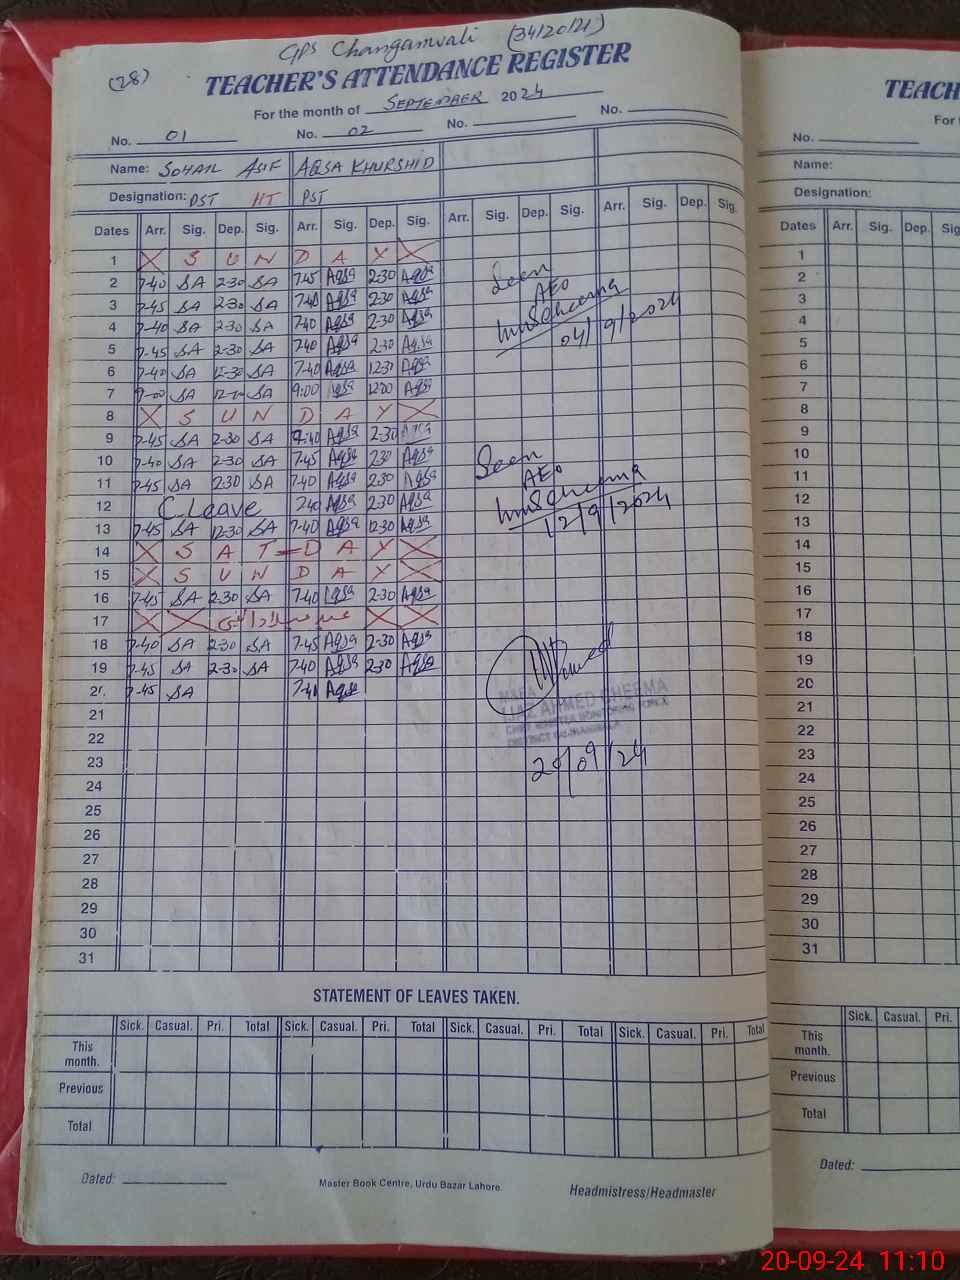 GPS Changanwali (34120121)
(28)
TEACHER'S ATTENDANCE REGISTER
For the month of SEPTEMBER 2024
No. 01 No. 02 No. No.
Name: SOHAIL ASIF AQSA KHURSHID
Designation: PST HT PST
Dates Arr. Sig. Dep. Sig. Arr. Sig. Dep. Sig. Arr. Sig. Dep. Sig. Arr. Sig. Dep. Sig.
1 X S U N D A Y X
2 7-40 SA 2-30 SA 7.45 Aqsa 2-30 Aqsa
3 7-45 SA 2-30 SA 7.40 Aqsa 2-30 Aqsa
4 7-40 SA 2-30 SA 7.40 Aqsa 2-30 Aqsa
5 7-45 SA 2-30 SA 7.40 Aqsa 2.30 Aqsa
6 7-40 SA 12-30 SA 7-40 Aqsa 12-30 Aqsa
7 9-00 SA SA 9:00 Aqsa 12:00 Aqsa
8 X S U N D A Y X
9 7-45 SA 2-30 SA Aqsa 2-30 Aqsa
10 7-40 SA 2-30 SA 7.45 Aqsa 2.30 Aqsa
11 7-45 SA 2.30 SA 7.40 Aqsa 2.30 Aqsa
12 C.Leave 7.40 Aqsa 2-30 Aqsa
13 7-45 SA 12-30 SA 7-40 Aqsa 12-30 Aqsa
14 X S A T-D A Y X
15 X S U N D A Y X
16 7-45 SA 2-30 SA 7.40 Aqsa 2-30 Aqsa
17 X X عید میلادالنبی X X
18 7-40 SA 2-30 SA 7-45 Aqsa 2-30 Aqsa
19 7-45 SA 2-30 SA 7.40 Aqsa 2.30 Aqsa
20 7-45 SA 7.40 Aqsa
21
22
23
24
25
26
27
28
29
30
31
Seen
AEO
04/9/2024
Seen
AEO
12/9/2024
IJAZ AHMED CHEEMA
CHIEF MINISTER MONITORING FORCE
20/09/24
STATEMENT OF LEAVES TAKEN.
Sick. Casual. Pri. Total Sick. Casual. Pri. Total Sick. Casual. Pri. Total Sick. Casual. Pri. Total
This month.
Previous
Total
Dated:
Master Book Centre, Urdu Bazar Lahore.
Headmistress/Headmaster
TEACH
For
No.
Name:
Designation:
Dates Arr. Sig. Dep. Sig
1
2
3
4
5
6
7
8
9
10
11
12
13
14
15
16
17
18
19
20
21
22
23
24
25
26
27
28
29
30
31
Sick. Casual. Pri.
This month.
Previous
Total
Dated:
20-09-24 11:10